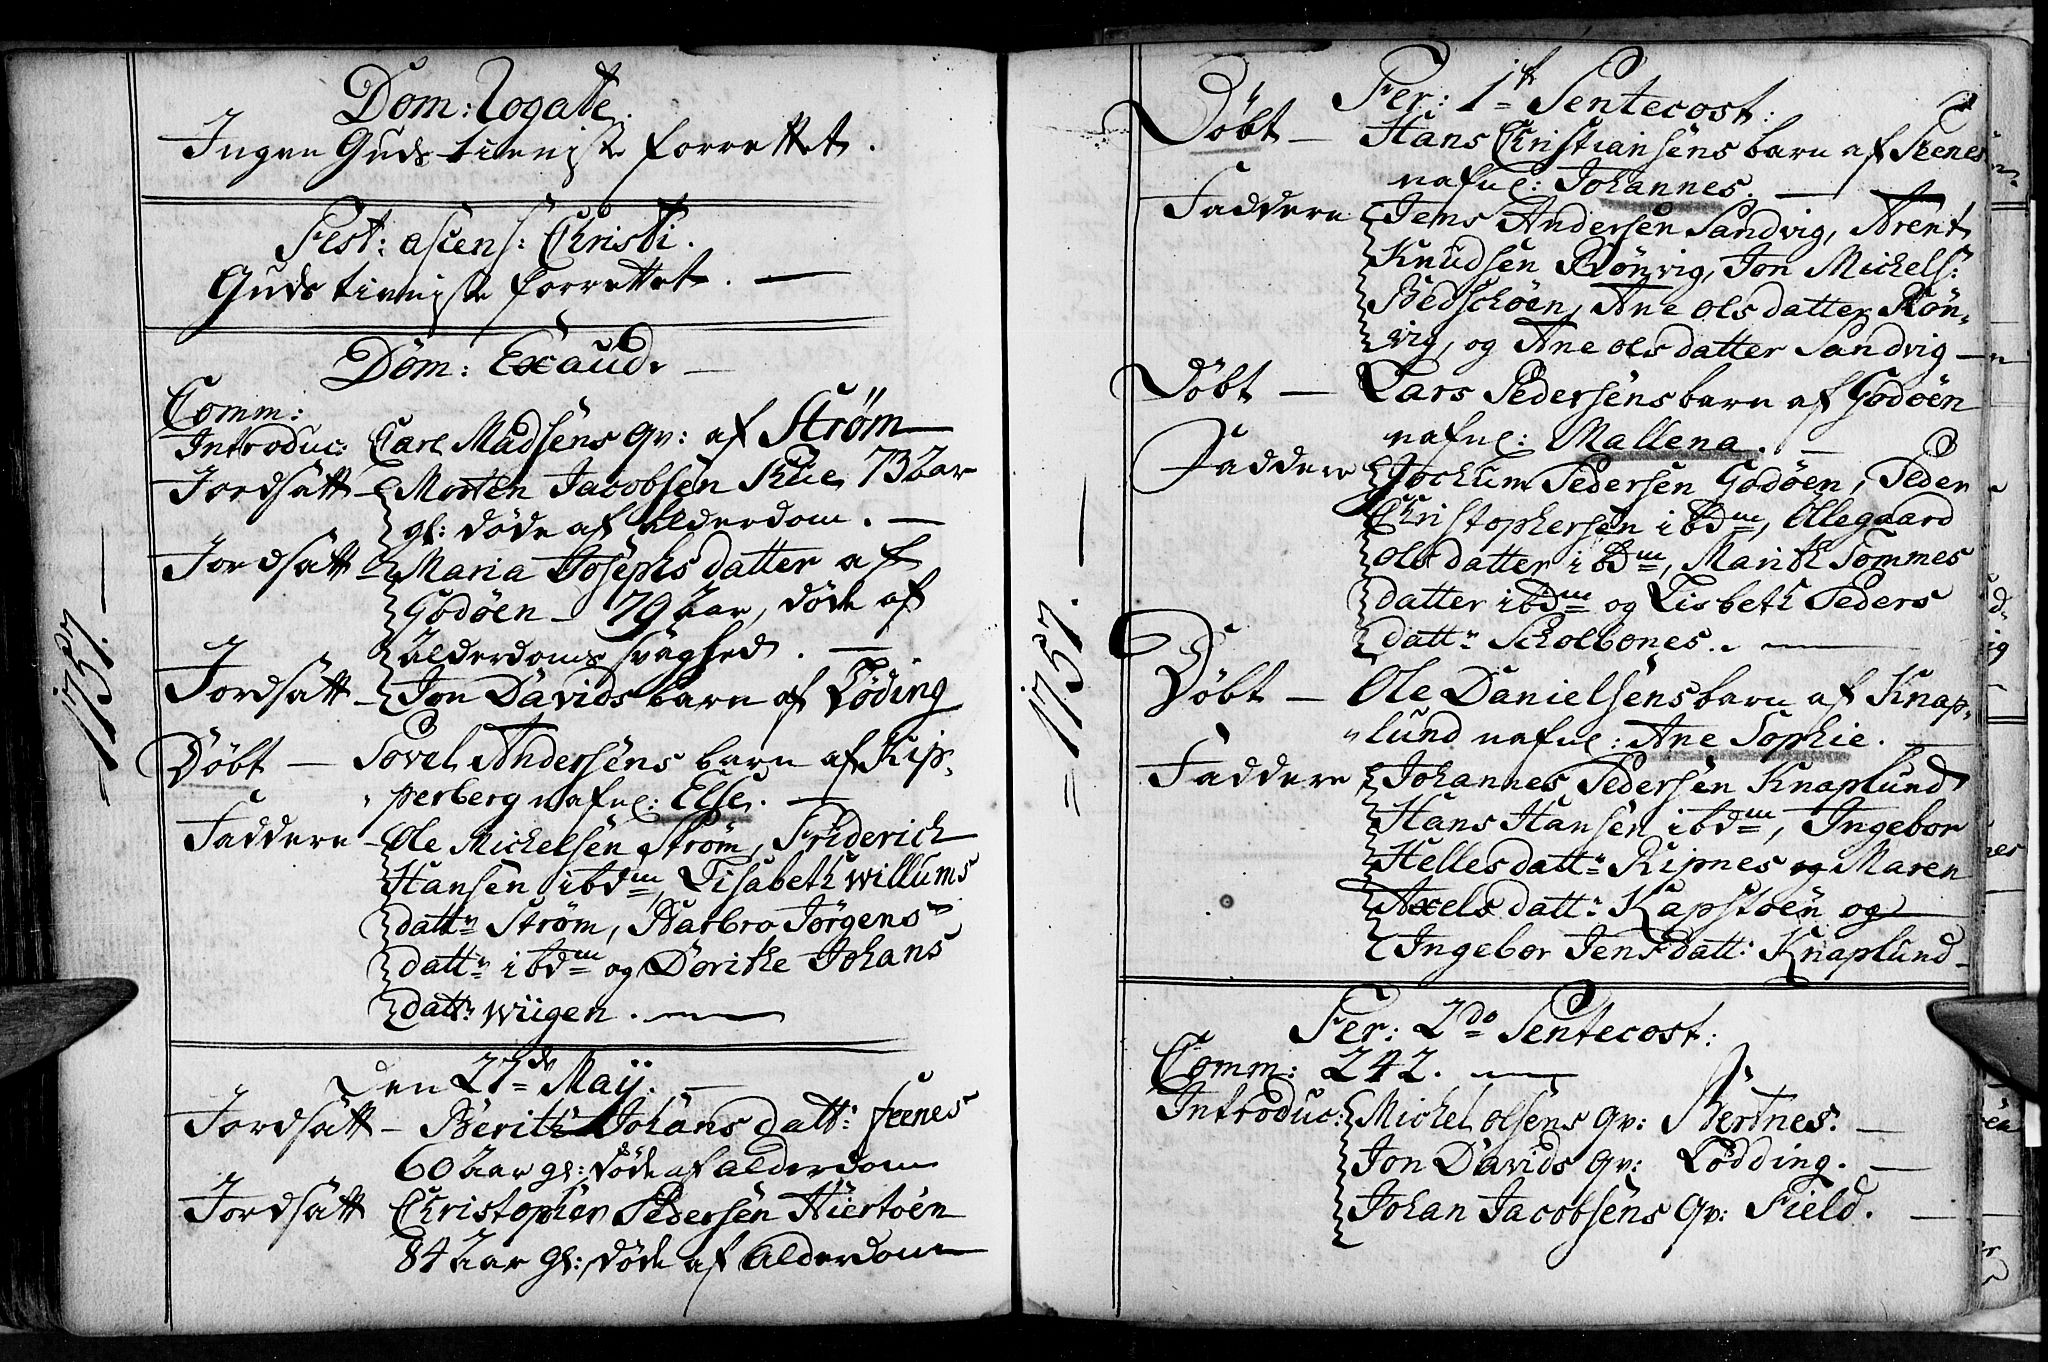 1757.
Dom: Rogate.
Ingen Guds tieniste forrettet.
Fest: ascens: Christi.
Guds tieniste forrettet.
Dom: Exaudi
Comm:
Introduc: Carl Madsens qv: af Strøm
Jordsatt - Morten Jacobsen Rue, 73 Aar
gl: døde af Alderdom.
Jordsatt - Maria Josephs datter af
Godøen - 79 Aar, døde af
Alderdoms svaghed.
Jordsatt - Jon Davids barn af Løding
Døbt - Povel Andersens barn af Kip-
perberg nafnl: Else.
Faddere - Ole Michelsen Strøm, Friderich
Hansen ibdm, Lisabeth Willums
dattr Strøm, Barbro Jørgens
dattr ibdm og Dorithe Johans
dattr Wiigen.
Den 27de Maij.
Jordsatt - Berith Johans datt: Feenes
60 Aar gl: døde af alderdom
Jordsatt Christopher Pedersen Hiertøen
84 Aar gl: døde af Alderdom
1757.
Fer: 1st Pentecost:
Døbt - Hans Christiansens barn af Feenes
nafnl: Johannes.
Faddere Jens Andersen Sandvig, Arent
Knudsen Rønvig, Jon Michels:
Bedschøen, Ane Ols datter Røn-
vig, og Ane Ols datter Sandvig
Døbt - Lars Pedersens barn af Godøen
nafnl: Mallena.
Faddere Jochum Pedersen Godøen, Peder
Christophersen ibdm, Ollegaard
Ols datter ibdm, Marith Tommes
datter ibdm og Lisbeth Peders
dattr Scholbones.
Døbt - Ole Danielsens barn af Knap-
lund nafnl: Ane Sophie.
Faddere Johannes Pedersen Knaplund
Hans Hansen ibdm, Ingebor
Helles dattr Ripnes og Maren
Axels dattr Kapstøen og
Ingebor Jens datt: Knaplund
Fer: 2do Pentecost:
Comm: 242.
Introduc: Michel Olsens qv: Bertnes.
Jon Davids qv: Lødding.
Johan Jacobsens qv: Field.